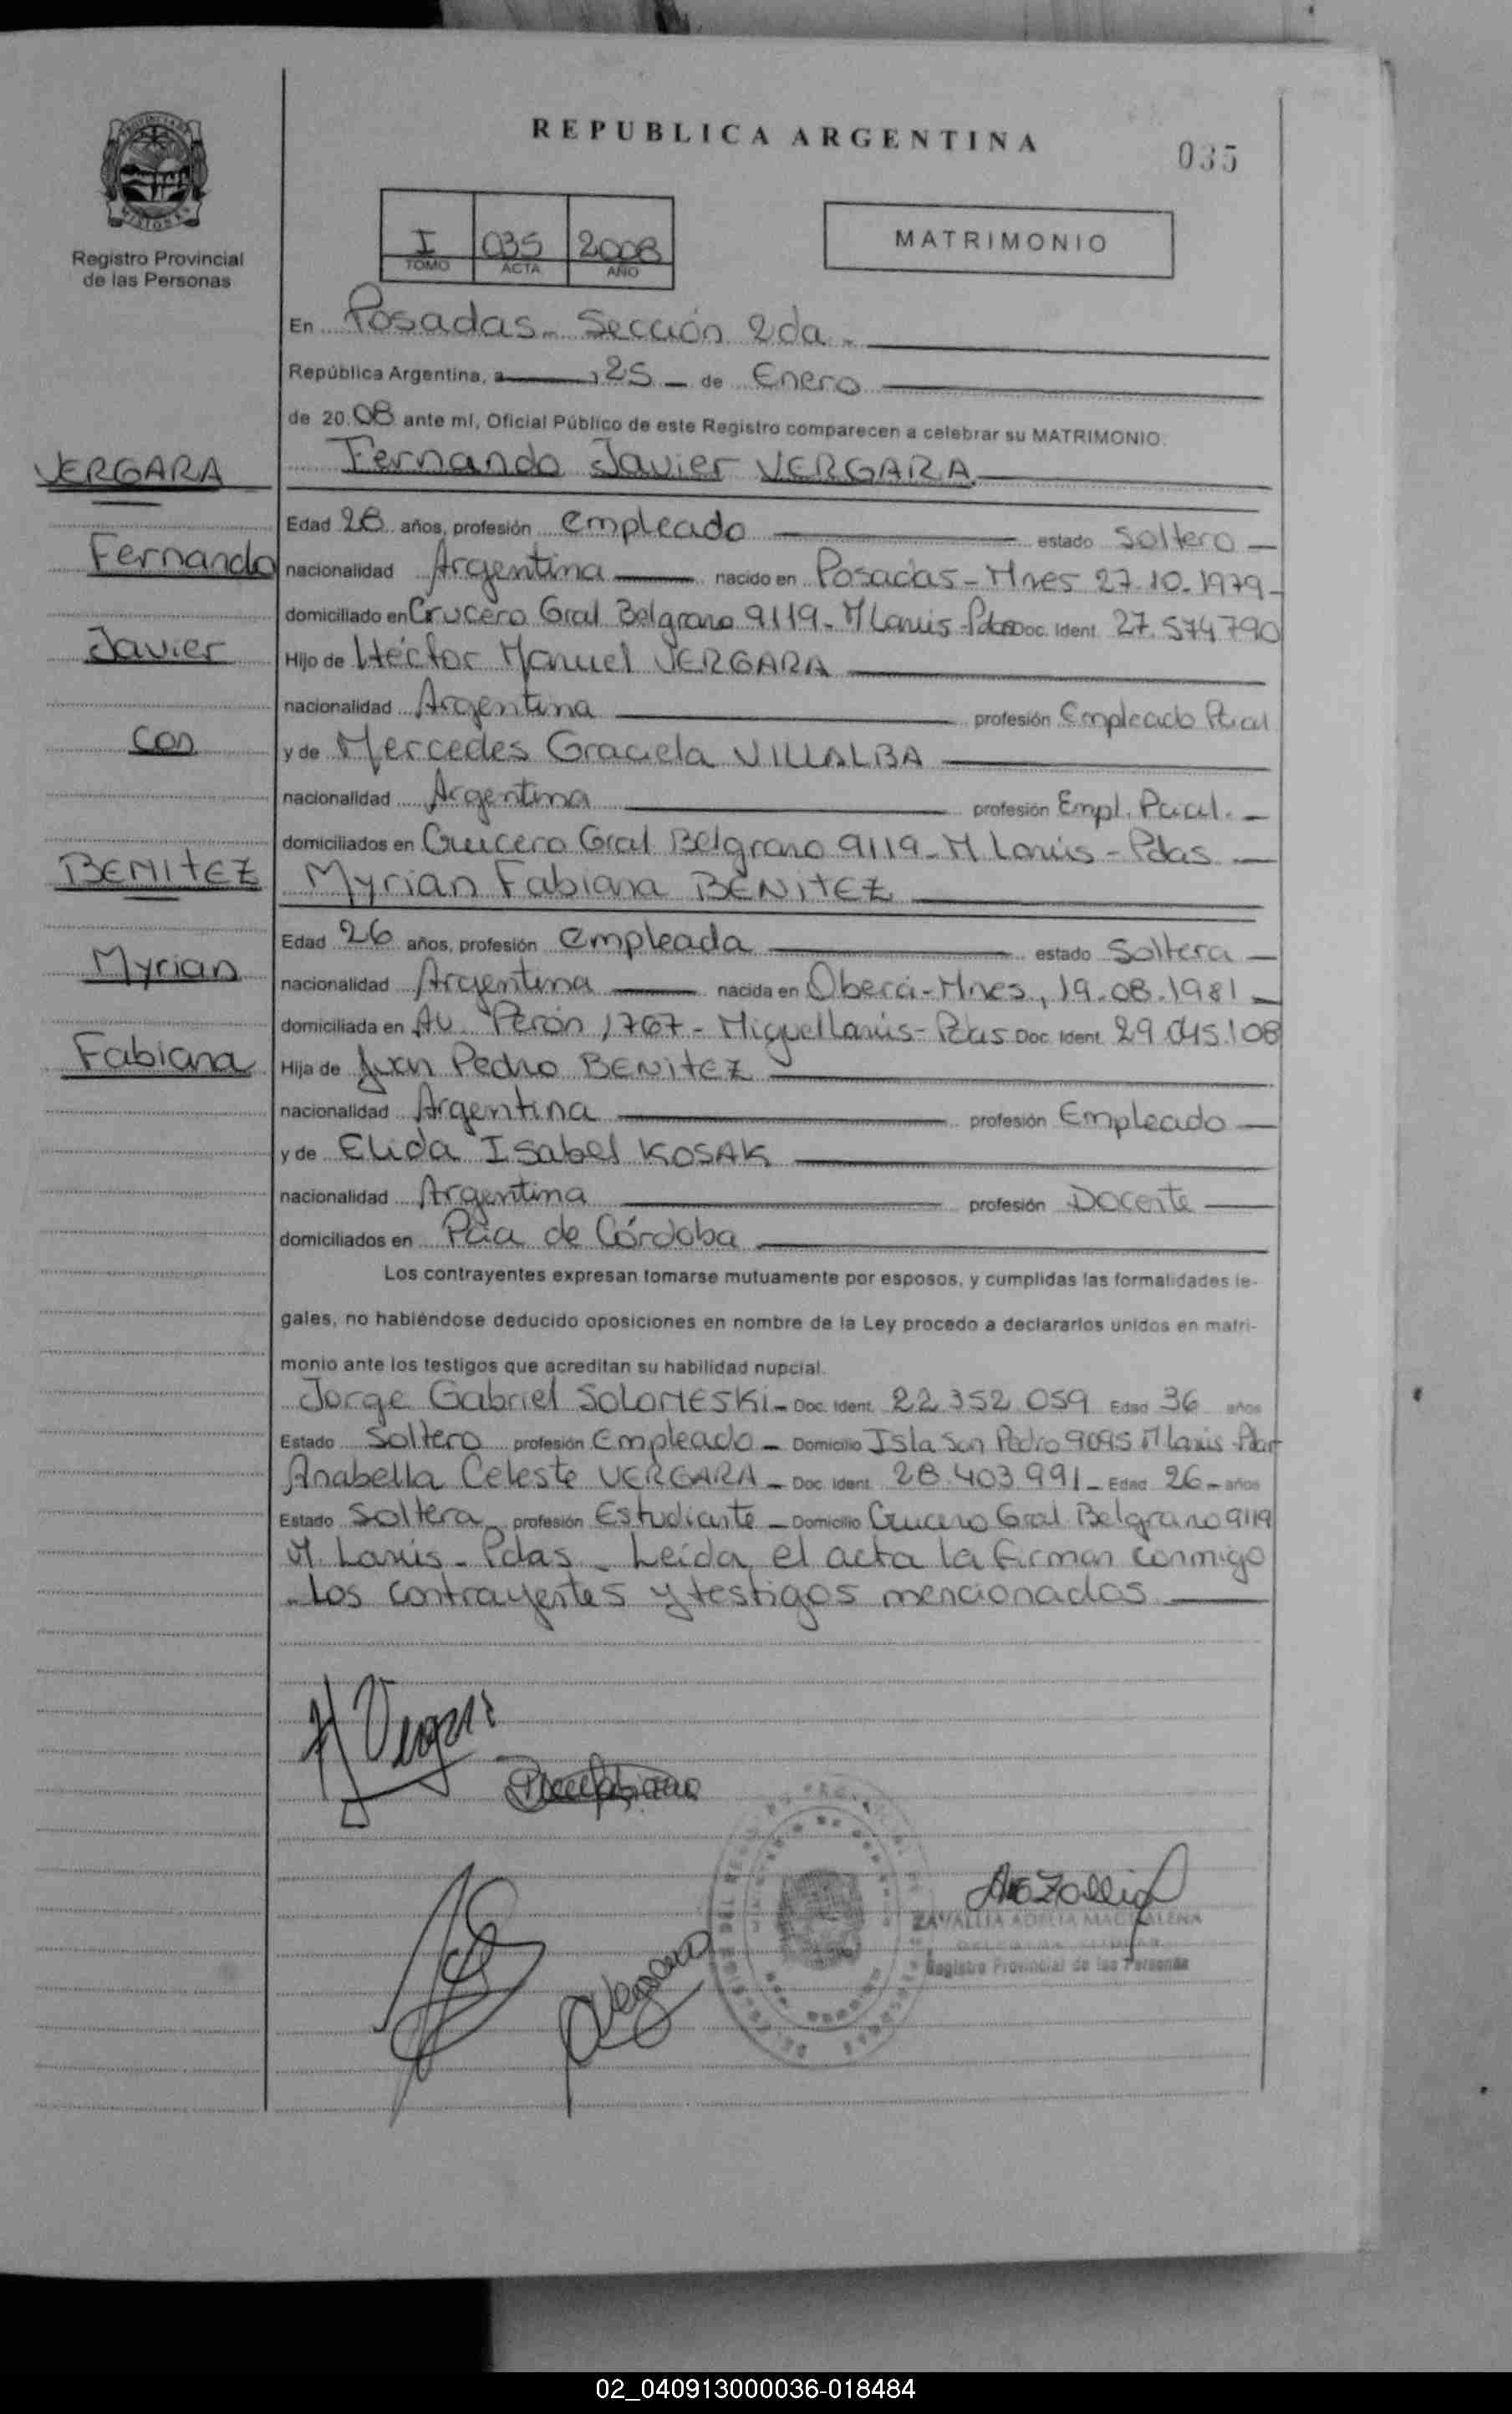 REPUBLICA ARGENTINA
035
PROVINCIA DE MISIONES
Registro Provincial
de las Personas
I 035 2008
TOMO ACTA AÑO
MATRIMONIO
En Posadas - Sección 2da -
República Argentina, a 25 - de Enero
de 2008 ante mí, Oficial Público de este Registro comparecen a celebrar su MATRIMONIO.
VERGARA
Fernando Javier VERGARA
Edad 28 años, profesión empleado estado Soltero -
Fernando
nacionalidad Argentina nacido en Posadas - Mnes 27.10.1979 -
domiciliado en Crucero Gral Belgrano 9119 - M Lanús - Pdas Doc. Ident. 27.574790
Javier
Hijo de Héctor Manuel VERGARA
nacionalidad Argentina profesión Empleado Pcial
con
y de Mercedes Graciela VILLALBA
nacionalidad Argentina profesión Empl. Pcial. -
domiciliados en Crucero Gral Belgrano 9119 - M Lanús - Pdas -
BENITEZ
Myrian Fabiana BENITEZ
Edad 26 años, profesión empleada estado Soltera -
Myrian
nacionalidad Argentina nacida en Oberá - Mnes, 19.08.1981 -
domiciliada en Av. Perón 1767 - Miguel Lanús - Pdas Doc. Ident. 29.045.108
Fabiana
Hija de Juan Pedro BENITEZ
nacionalidad Argentina profesión Empleado -
y de Elida Isabel KOSAK
nacionalidad Argentina profesión Docente
domiciliados en Pcia de Córdoba
Los contrayentes expresan tomarse mutuamente por esposos, y cumplidas las formalidades le-
gales, no habiéndose deducido oposiciones en nombre de la Ley procedo a declararlos unidos en matri-
monio ante los testigos que acreditan su habilidad nupcial.
Jorge Gabriel SOLOMESKI - Doc. Ident. 22.352.059 Edad 36 años
Estado Soltero profesión Empleado - Domicilio Isla San Pedro 9095 M Lanús - Pdas
Anabella Celeste VERGARA - Doc. Ident. 28.403.991 - Edad 26 - años
Estado Soltera profesión Estudiante - Domicilio Crucero Gral Belgrano 9119
M Lanús - Pdas - Leída el acta la firman conmigo
los contrayentes y testigos mencionados
ZAVALLIA ADELIA MAGDALENA
Registro Provincial de las Personas
02_040913000036-018484